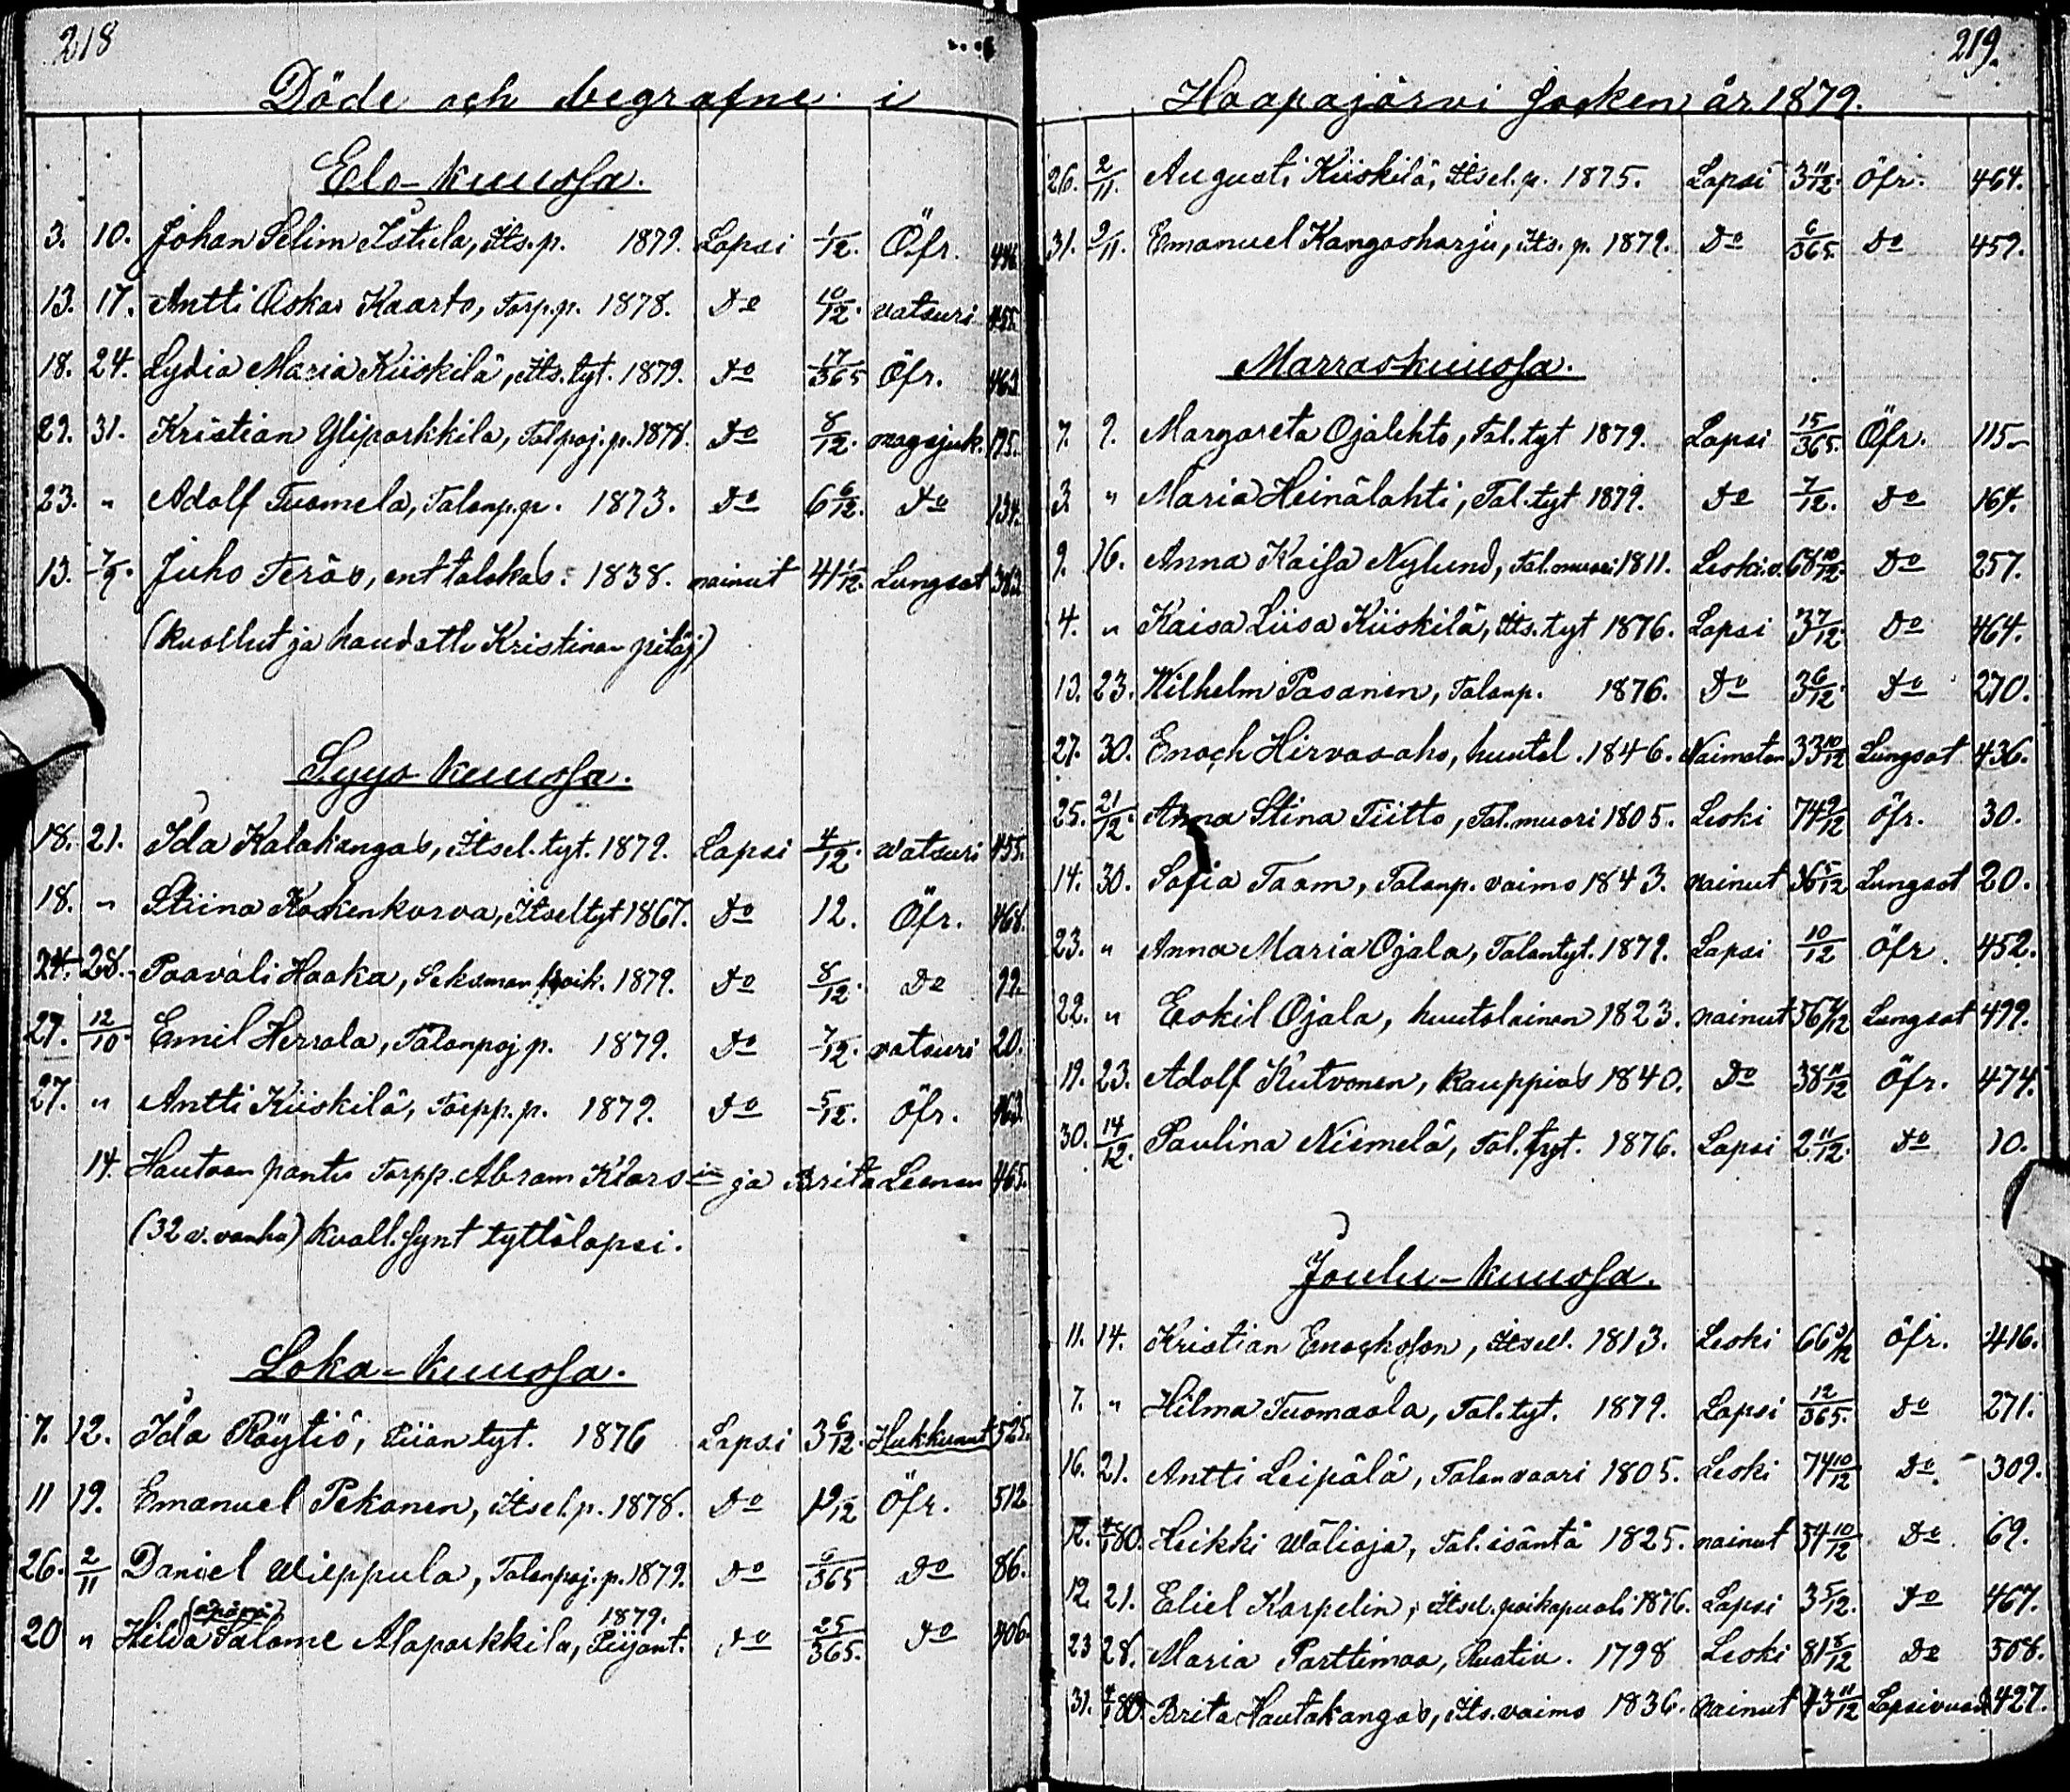 218
Döde och begrafne i
Elo-kuussa.
3. 10. Johan Selim Istula, Its.p. 1879. Lapsi 1/12. Öfr.
13. 17. Antti Oskar Kaarto, Torp.p. 1878. Do 10/12. vatsuri 455.
18. 24. Lydia Maria Kiiskilä, Its.tyt. 1879. Do 17/365 Öfr. 463.
29. 31. Kristian Yliparkkila, Talpoj.p. 1878. Do 8/12. magsjuk.
23. " Adolf Tuomela, Talonp.p. 1873. Do 6 6/12. Do 134.
13. 7/9. Juho Teräs, ent talokas. 1838. nainut 41 1/12. Lungsot
(kuollut ja haudattu Kristinan pitäj)
Syys-kuussa.
18. 21. Ida Kalakangas, Itsel.tyt. 1879. Lapsi 4/12. vatsuri 455.
18. " Stiina Koskenkorva, Itsel tyt 1867. Do 12. Öfr. 468.
24. 28. Paavali Haaka, Seksman poik. 1879. Do 8/12. Do 99.
27. 12/10. Emil Herrala, Talonpoj p. 1879. Do 7/12. vatsuri 20.
27. " Antti Kiiskilä, Torpp.p. 1879. Do 5/12. Öfr. 463.
14. Hautaan pantu Torpp. Abram Klaus in ja Brita Leenan 465.
(32 v. vanha) kuoll. synt tyttölapsi.
Loka-kuussa.
7. 12. Ida Räytiö, Piian tyt. 1876 Lapsi 3 6/12. Hukkunut 525.
11 19. Emanuel Pekonen, Itsel.p. 1878. Do 1 9/12 Öfr. 512
26. 2/11 Daniel Wieppula, Talonpoj.p. 1879. Do 6/365 Do 86.
(äpärä) 1879.
20 " Hilda Salome Alaparkkila, Piijant. Do 25/365. Do 406.
219.
Haapajärvi Socken år 1879.
26. 2/11. Augusti Kiiskilä, Itsel.p. 1875. Lapsi 3 11/12. Öfr. 464.
31. 9/11. Emanuel Kangasharju, Its.p. 1879. Do 6/365. Do 459.
Marras-kuussa.
7. 9. Margareta Ojalehto, Tal.tyt 1879. Lapsi 15/365. Öfr. 115.
3. " Maria Heinälahti, Tal.tyt 1879. Do 7/12. Do 164.
9. 16. Anna Kaisa Nylund, Tal.muori 1811. Leski.v. 68 10/12. Do 257.
4. " Kaisa Liisa Kiiskilä, Its.tyt 1876. Lapsi 3 7/12. Do 464.
13. 23. Wilhelm Pasanen, Talonp. 1876. Do 3 6/12. Do 270.
27. 30. Enoch Hirvasaho, huutol. 1846. Naimaton 33 10/12 Lungsot 436.
25. 21/12. Anna Stina Tiitto, Tal.muori 1805. Leski 74 9/12 Öfr. 30.
14. 30. Sofia Taam, Talonp. vaimo 1843. nainut 36 5/12 Lungsot 20.
23. " Anna Maria Ojala, Talontyt. 1879. Lapsi 10/12 Öfr. 452.
22. " Eskil Ojala, huutolainen 1823. nainut 56 4/12 Lungsot 499.
19. 23. Adolf Kutvonen, kauppias 1840. Do 38 11/12 Öfr. 474.
30. 14/12. Paulina Niemelä, Tal.tyt. 1876. Lapsi 2 11/12. Do 10.
Joulu-kuussa.
11. 14. Kristian Enochsson, Itsell. 1813. Leski 66 3/12 Öfr. 416.
7. " Hilma Tuomaala, Tal.tyt. 1879. Lapsi 12/365. Do 271.
16. 21. Antti Leipälä, Talonvaari 1805. Leski 74 10/12 Do. 309.
12. 4/1 80. Heikki Wälioja, Tal.isäntä 1825. nainut 54 10/12 Do. 69.
12. 21. Eliel Karpelin, Itsel. poikapuoli 1876. Lapsi 3 5/12. Do 467.
23 28. Maria Parttimaa, Ruotiv. 1798 Leski 81 8/12 Do 508.
31. 4/1 80. Brita Hautakangas, Its. vaimo 1836. nainut 43 11/12 Lapsivuod 427.